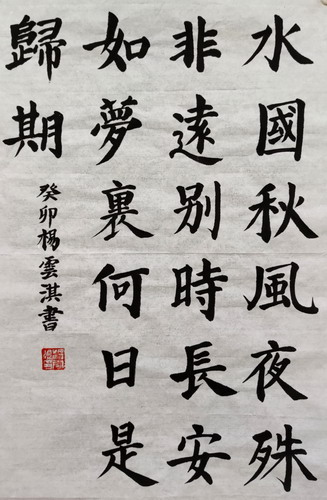 水國秋風夜殊
非遠别時長安
如夢裏何日是
歸期
癸卯楊雲淇書